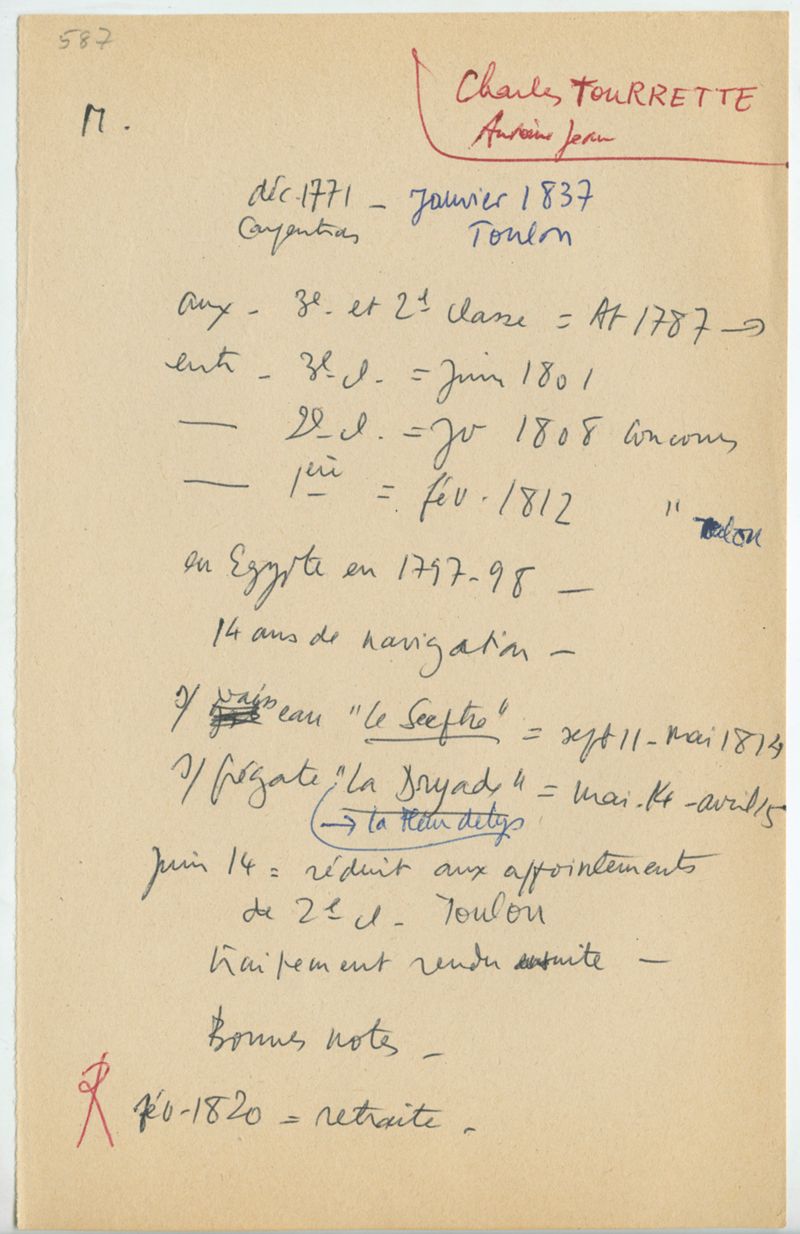 587
Charles TOURRETTE
Antoine Jean
M.
déc. 1771 – Janvier 1837
Carpentras Toulon
aux – 3e et 2d classe = At 1787 →
entr – 3e cl. = Juin 1801
— 2e cl. = Jv 1808 Concours
— 1ère = fév. 1812 " Toulon
en Egypte en 1797-98 –
14 ans de navigation –
s/ vaisseau "Le Sceptre" = sept 11 – mai 1814
s/ frégate "La Dryade" = mai 14 – avril 15
→ la fleur de lys
Juin 14 = réduit aux appointements
de 2e cl – Toulon
traitement rendu ensuite –
Bonnes notes –
R fév-1820 = retraite –